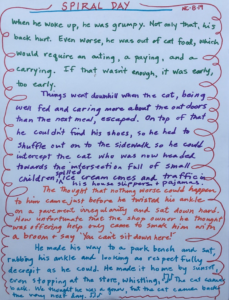 SPIRAL DAY
When he woke up, he was grumpy. Not only that, his
back hurt. Even worse, he was out of cat food, which
would require an outing, a paying, and a
carrying. If that wasn't enough, it was early,
too early.
Things went downhill when the cat, being
well fed and caring more about the outdoors
than the next meal, escaped. On top of that
he couldn't find his shoes, so he had to
shuffle out on to the sidewalk so he could
intercept the cat who was now headed
towards the intersection full of small
children, spilled ice cream cones and traffic in
his house slippers & pajamas.
The thought that nothing worse could happen
to him came just before he twisted his ankle
on a pavement irregularity and sat down hard.
How unfortunate that the shop owner he thought
was offering help only came to smack him with
a broom & say "You can't sit down here!"
He made his way to a park bench and sat,
rubbing his ankle and looking as respectfully
decrepit as he could. He made it home by
even stopping at the store, whistling. If the cat came
back. We thought he was a goner, but the cat came back
the very next day.